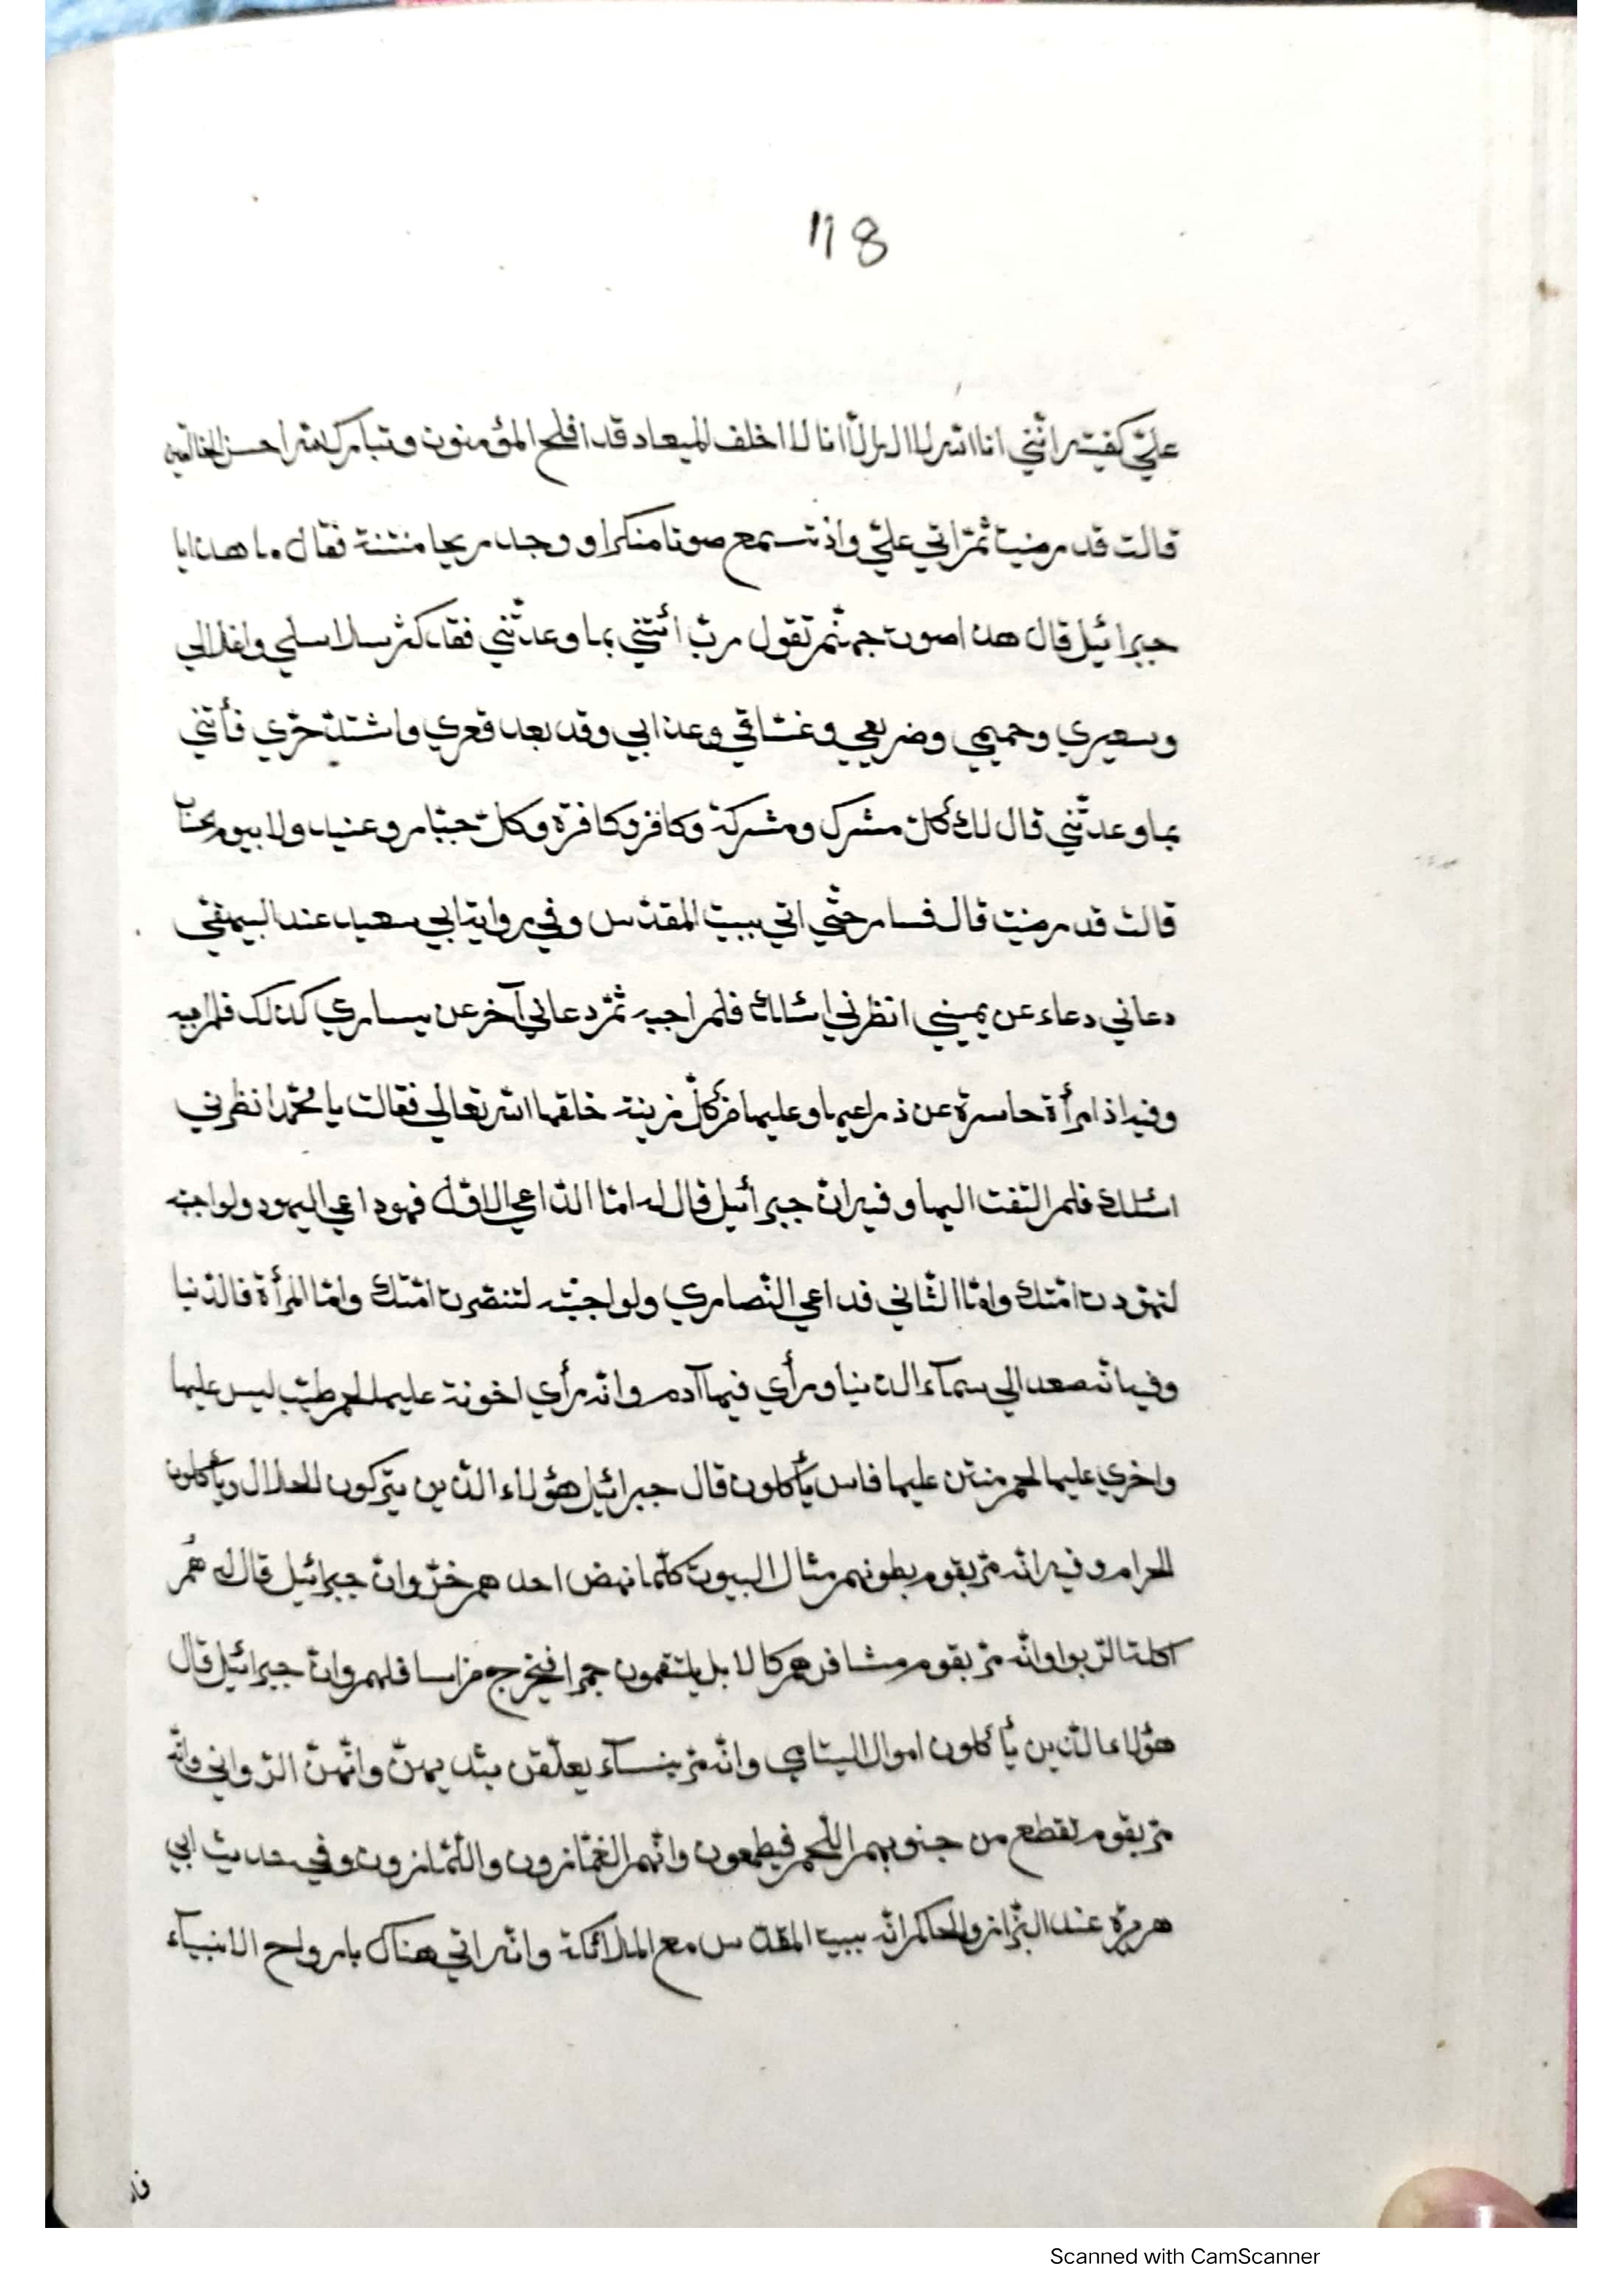 118
عليّ كفيته انّني انا الله لا اله الّا انا لا اخلف الميعاد قد افلح المؤمنون وتبارك الله احسن الخالقين
قالت قد رضيت ثمّ اتي عليّ واذ تسمع صوتا منكرا ووجد ريحا منتنة فقال ما هذا يا
جبرائيل قال هذا صوت جهنّم تقول ربّ أتني بما وعدتّني فقد كثر سلاسلي واغلالي
وسعيري وحميمي وضريعي وغسّاقي وعذابي وقد بعد قعري واشتدّ حرّي فأتني
بما وعدتّني قال لك كلّ مشرك ومشركة وكافر وكافرة وكلّ جبّار وعنيد ولا بيوم
قالت قد رضيت قال فسار حتّي اتي ببيت المقدّس وفي رواية ابي سعيد عند البيهقي
دعاني دعاء عن يميني انظرني اسئلك فلم اجبه ثمّ دعاني آخر عن يساري كذلك فلم
وفيه اذ امرأة حاسرة عن ذراعيها وعليها من كلّ زينة خلقها الله تعالي فقالت يا محمّد انظرني
اسئلك فلم التفت اليها وفيه انّ جبرائيل قال له امّا الدّاعي الاوّل فهو داعي اليهود ولو اجبته
لتهوّدت امّتك وامّا الثّاني فداعي النّصاري ولو اجبته لتنصّرت امّتك وامّا المرأة فالدّنيا
وفيه انّه صعد الي سمآء الدنيا ورأي فيها آدم وانّه رأي اخونة عليها لحم طيّب ليس عليها
واخري عليها لحم منتن عليها ناس يأكلون قال جبرائيل هؤلاء الّذين يتركون الحلال ويأكلون
الحرام وفيه انّه مرّ بقوم بطونهم مثال البيوت كلّما نهض احدهم خرّ وانّ جبرائيل قال له هُم
اكلة الرّبوا وانّه مرّ بقوم مشافرهم كالابل يلتقمون جمرا فيخرج من اسافلهم وانّ جبرائيل قال
هؤلاء الّذين يأكلون اموال اليتامي وانّه مرّ بنسآء يعلّقن بثديهنّ وانّهنّ الزّواني وانّه
مرّ بقوم تقطع من جنوبهم اللّحم فيطعمون وانّهم الغمّازون واللّمّازون وفي حديث ابي
هريرة عند البزّاز والحاكم انّه ببيت المقدّس مع الملائكة وانّه اتي هناك بارواح الانبيآء